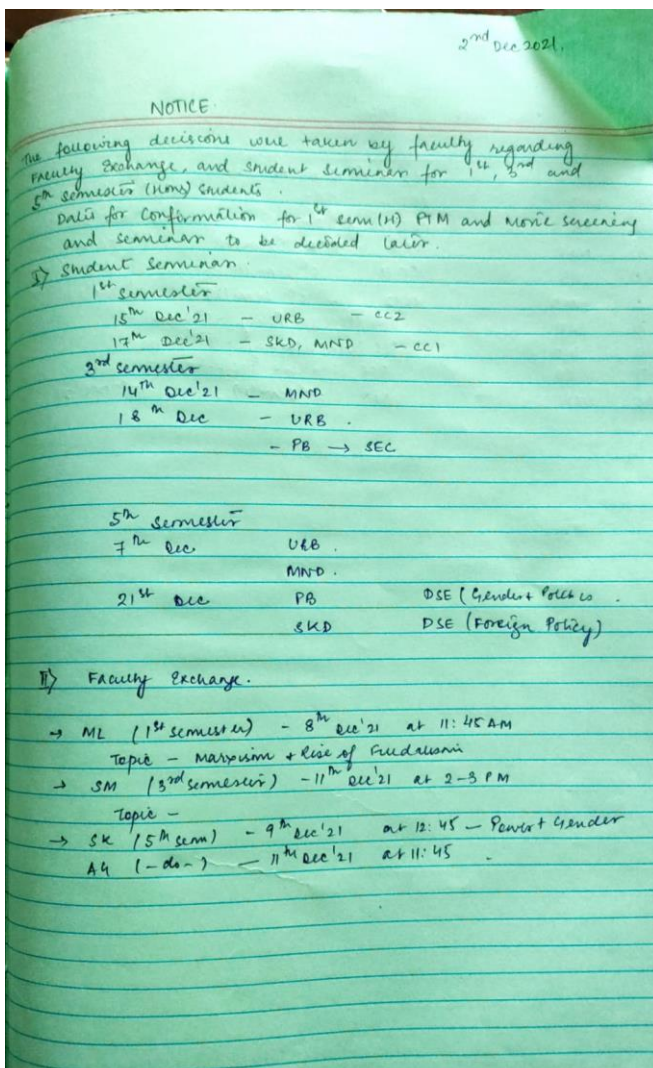 2nd Dec 2021.
NOTICE
The following decisions were taken by faculty regarding
Faculty Exchange, and student seminar for 1st, 3rd and
5th semester (Hons) students.
Dates for Confirmation for 1st sem (H) PTM and Movie screening
and seminar to be decided later.
I) Student Seminar.
1st semester
15th Dec'21 - URB - CC2
17th Dec'21 - SKD, MND - CC1
3rd semester
14th Dec'21 - MND
18th Dec - URB.
- PB → SEC
5th Semester
7th Dec URB.
MND.
21st Dec PB DSE (Gender + Politics.
SKD DSE (Foreign Policy)
II) Faculty Exchange.
→ ML (1st semester) - 8th Dec'21 at 11:45 AM
Topic - Marxism + Rise of Feudalism
→ SM (3rd semester) - 11th Dec'21 at 2-3 PM
Topic -
→ SK (5th sem) - 9th Dec'21 at 12:45 - Power + Gender
AG (-do-) - 11th Dec'21 at 11:45.